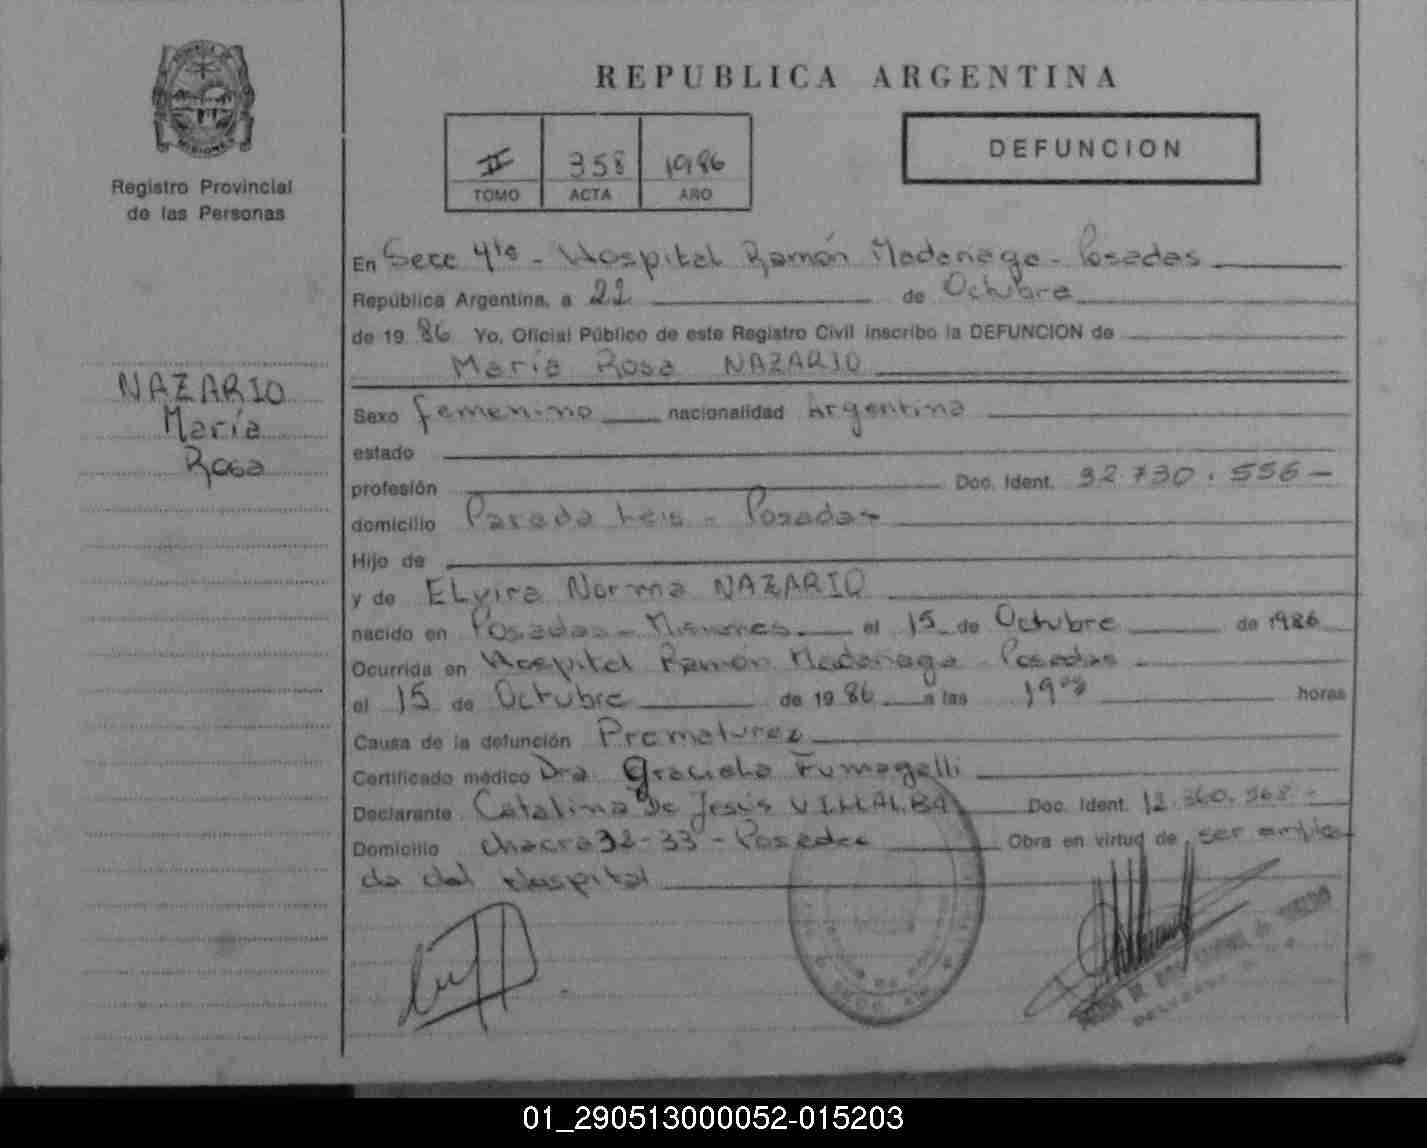 REPUBLICA ARGENTINA
DEFUNCION
II 358 1986
TOMO ACTA AÑO
Registro Provincial
de las Personas
NAZARIO
María
Rosa
En Secc 4ta - Hospital Ramón Madariaga - Posadas
República Argentina, a 22 de Octubre
de 19 86 Yo, Oficial Público de este Registro Civil inscribo la DEFUNCION de
María Rosa NAZARIO
Sexo femenino nacionalidad Argentina
estado
profesión Doc. Ident. 32.730.556-
domicilio Parada Leis - Posadas
Hijo de
y de ELvira Norma NAZARIO
nacido en Posadas - Misiones el 15 de Octubre de 1986
Ocurrida en Hospital Ramón Madariaga Posadas
el 15 de Octubre de 19 86 a las 19 horas
Causa de la defunción Prematurez
Certificado médico Dra. Graciela Fumagalli
Declarante Catalina De Jesús VILLALBA Doc. Ident. 12.560.568-
Domicilio chacra 32-33 - Posadas Obra en virtud de ser emplea
da del Hospital
01_290513000052-015203